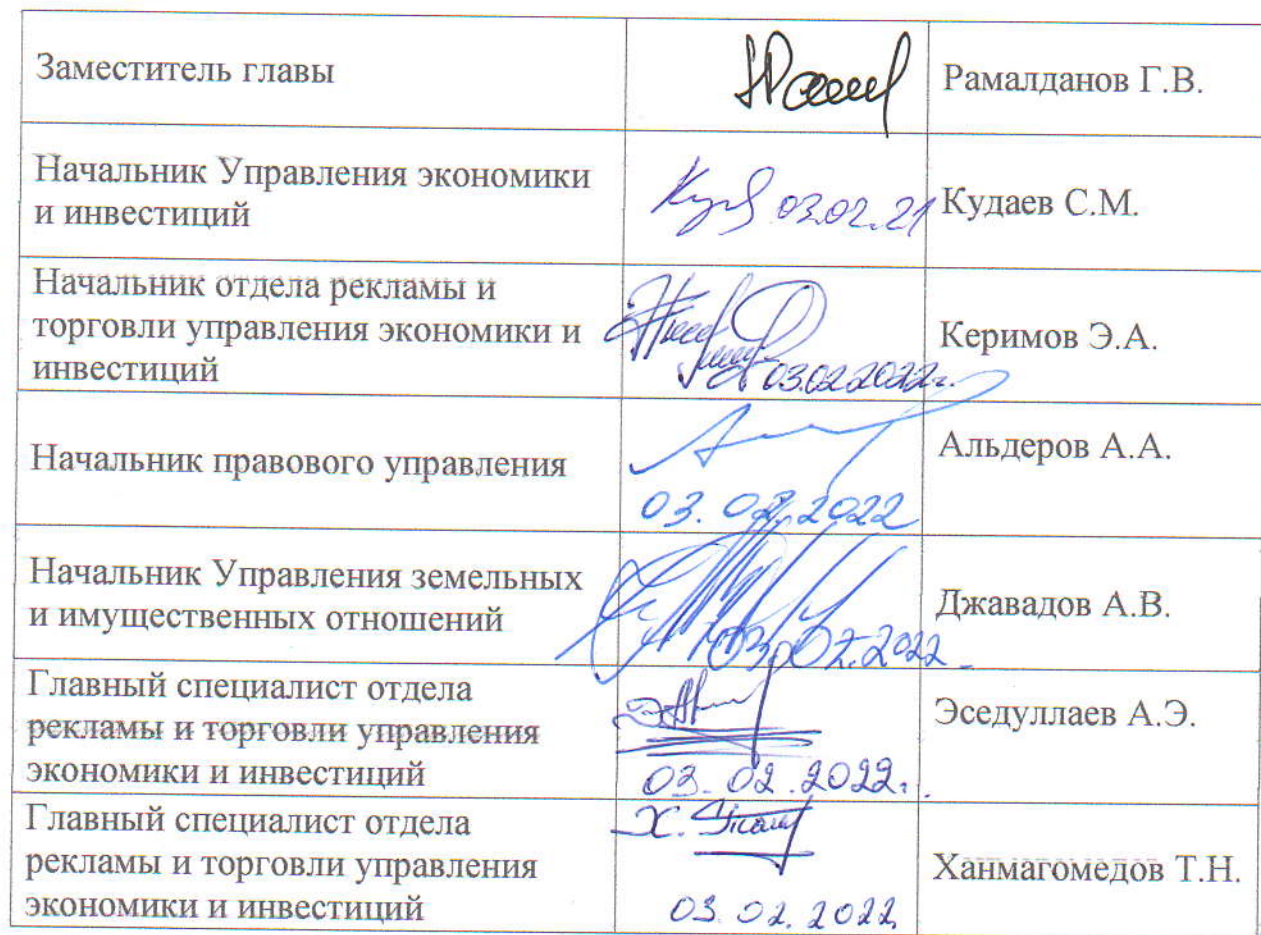 Заместитель главы
Рамалданов Г.В.
Начальник Управления экономики
и инвестиций
03.02.21
Кудаев С.М.
Начальник отдела рекламы и
торговли управления экономики и
инвестиций
03.02.2022г.
Керимов Э.А.
Начальник правового управления
03.02.2022
Альдеров А.А.
Начальник Управления земельных
и имущественных отношений
03.02.2022
Джавадов А.В.
Главный специалист отдела
рекламы и торговли управления
экономики и инвестиций
03.02.2022г.
Эседуллаев А.Э.
Главный специалист отдела
рекламы и торговли управления
экономики и инвестиций
03.02.2022
Ханмагомедов Т.Н.